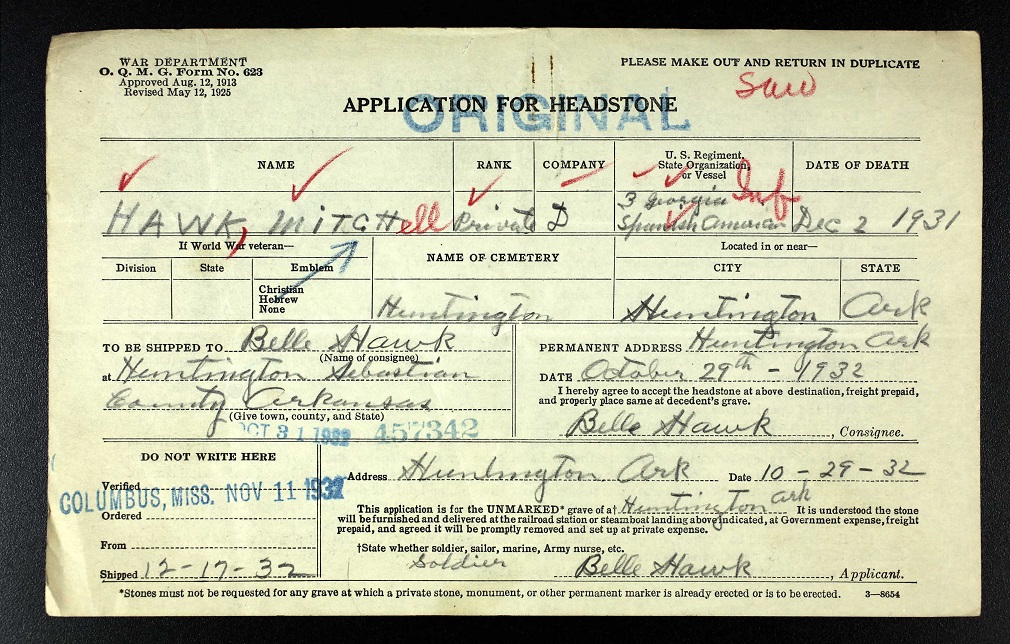 WAR DEPARTMENT
O. Q. M. G. Form No. 623
Approved Aug. 12, 1913
Revised May 12, 1925
PLEASE MAKE OUT AND RETURN IN DUPLICATE
APPLICATION FOR HEADSTONE
ORIGINAL
NAME
RANK
COMPANY
U. S. Regiment,
State Organization,
or Vessel
DATE OF DEATH
Inf
HAWK, MITCHell
Private
D
3 Georgia
Spanish American
Dec 2 1931
If World War veteran—
NAME OF CEMETERY
Located in or near—
Division
State
Emblem
CITY
STATE
Christian
Hebrew
None
Huntington
Huntington
Ark
TO BE SHIPPED TO Belle Hawk
(Name of consignee)
at Huntington Sebastian
County Arkansas
(Give town, county, and State)
OCT 31 1932 457342
PERMANENT ADDRESS Huntington Ark
DATE October 29th - 1932
I hereby agree to accept the headstone at above destination, freight prepaid,
and properly place same at decedent's grave.
Belle Hawk, Consignee.
DO NOT WRITE HERE
Verified
COLUMBUS, MISS. NOV 11 1932
Ordered
From
Shipped 12-17-32
Address Huntington Ark Date 10-29-32
This application is for the UNMARKED* grave of a† Huntington Ark It is understood the stone
will be furnished and delivered at the railroad station or steamboat landing above indicated, at Government expense, freight
prepaid, and agreed it will be promptly removed and set up at private expense.
†State whether soldier, sailor, marine, Army nurse, etc.
Soldier
Belle Hawk, Applicant.
*Stones must not be requested for any grave at which a private stone, monument, or other permanent marker is already erected or is to be erected. 3—8654